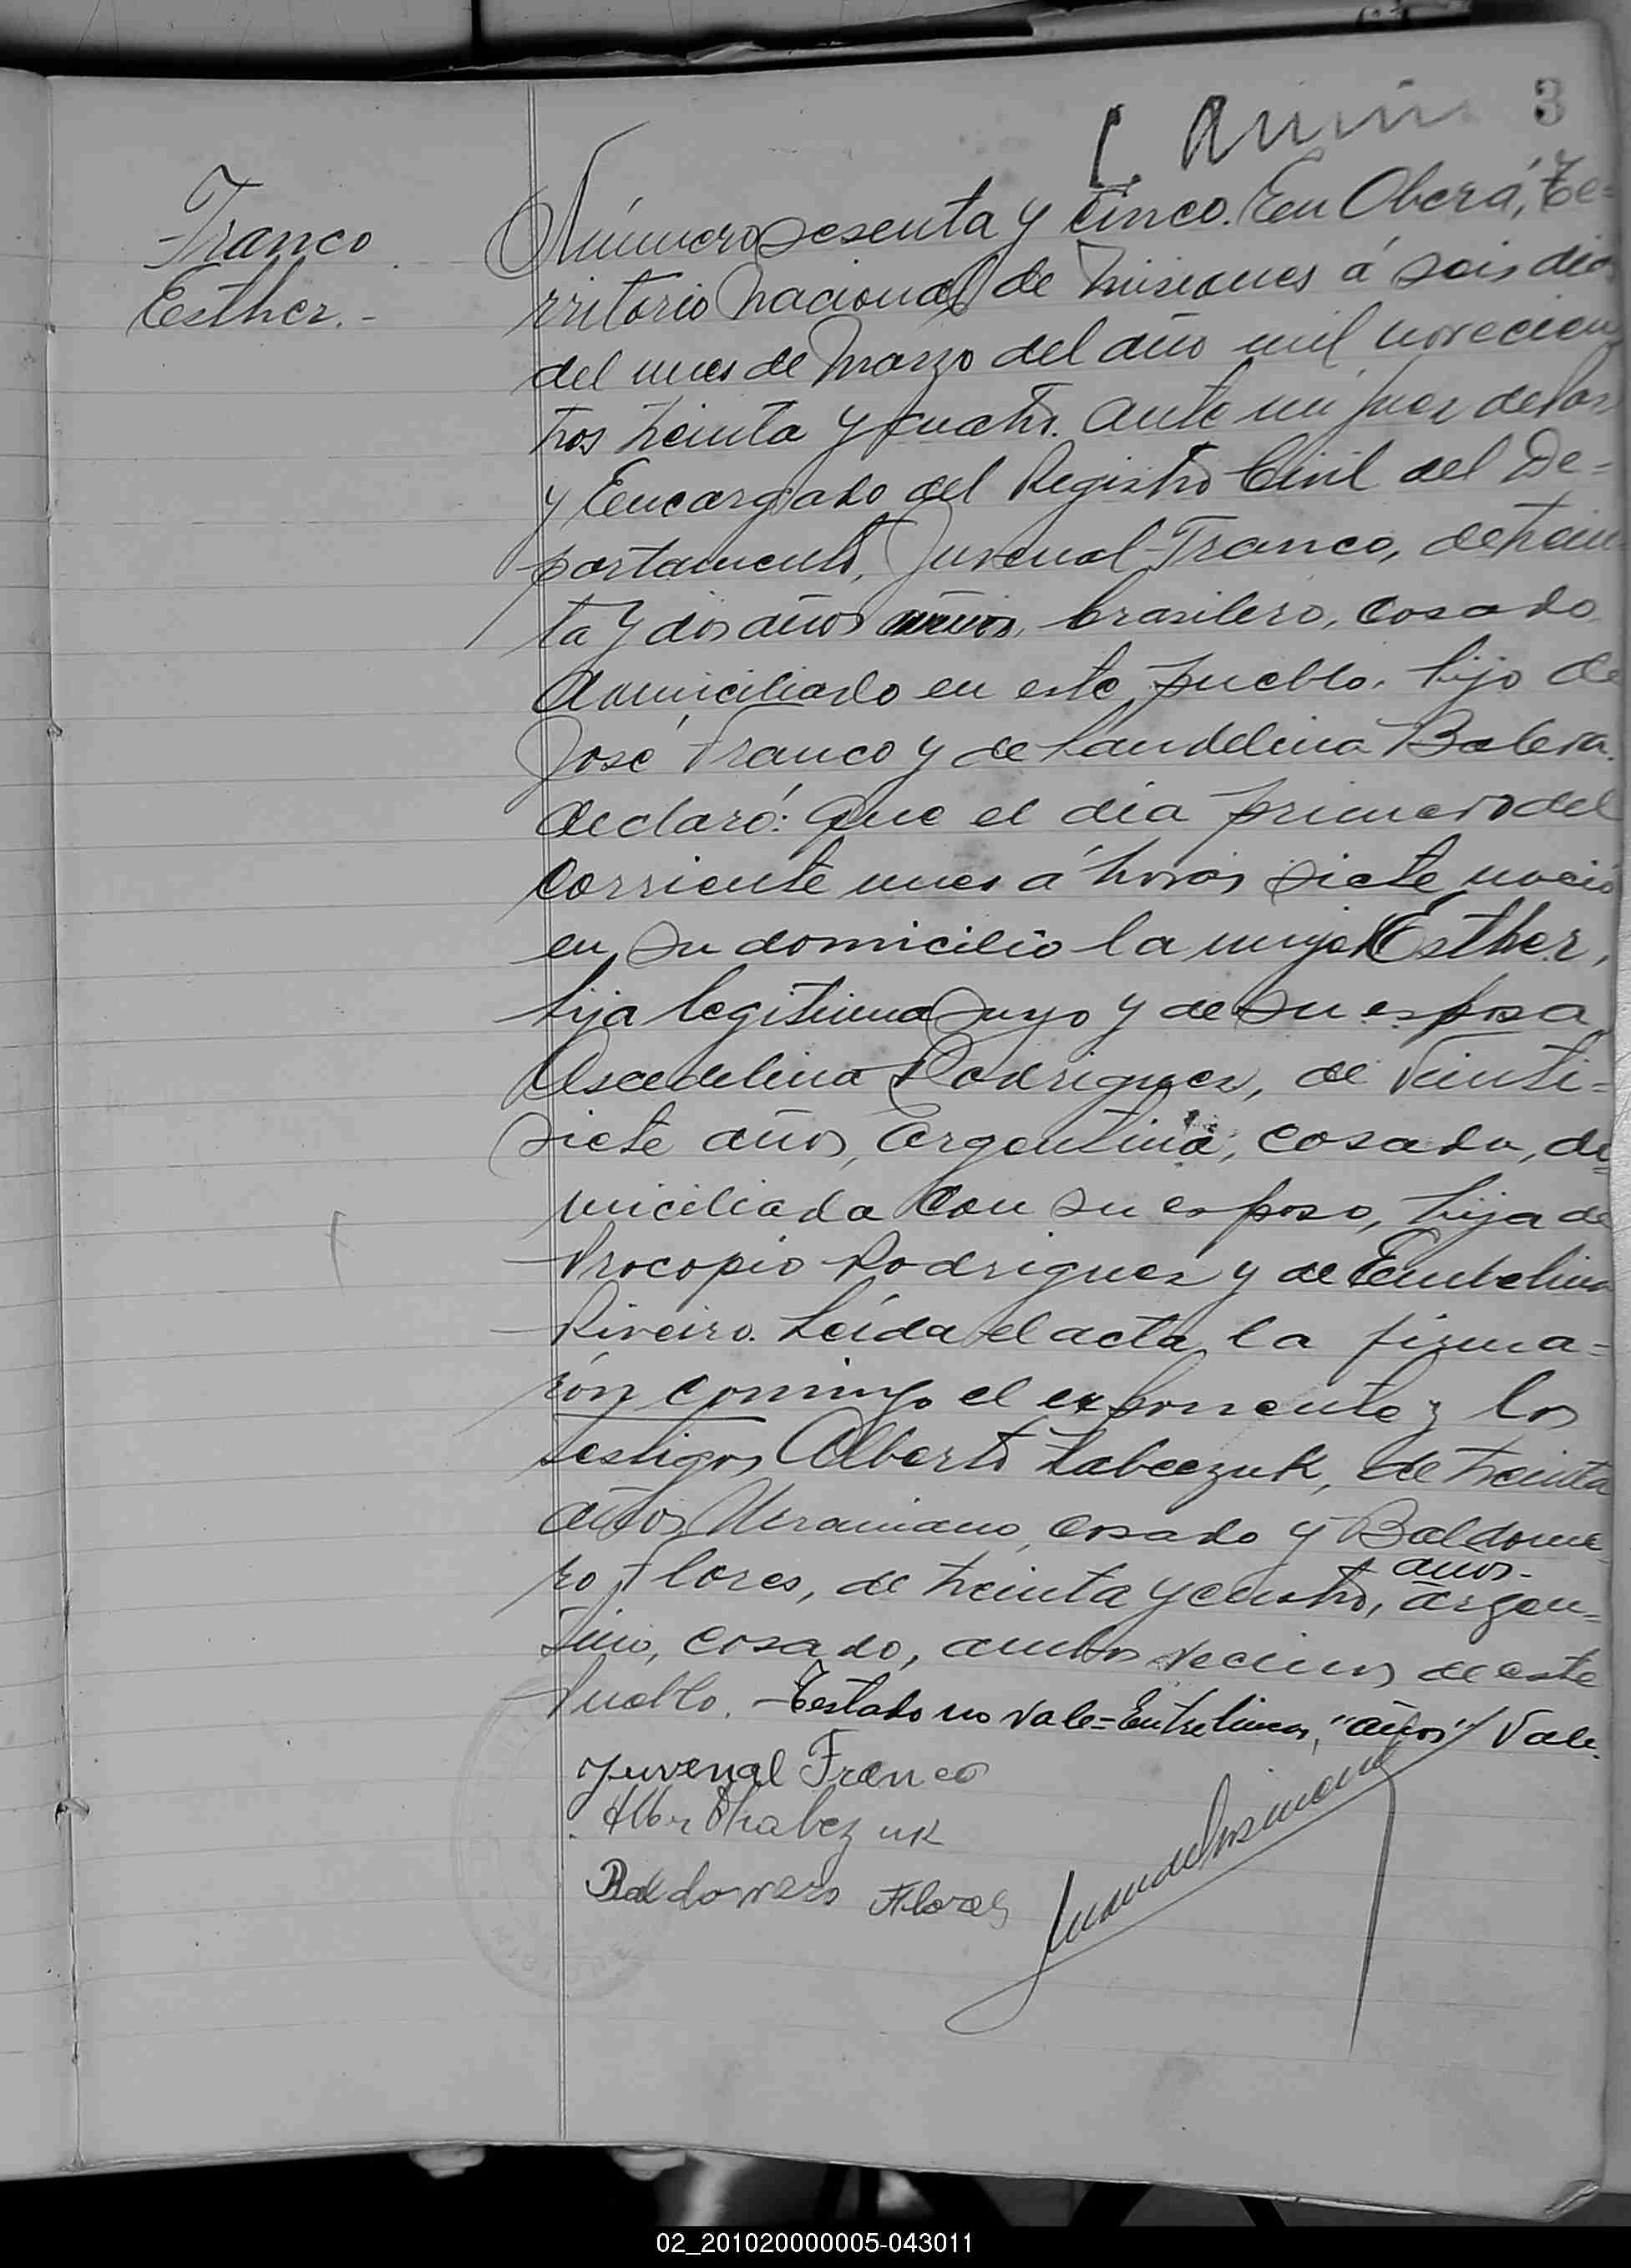 3
Franco
Esther.-
Número sesenta y cinco. En Oberá, Te=
rritorio Nacional de Misiones á seis dias
del mes de Marzo del año mil novecien
tos treinta y cuatro. Ante mi Juez de Paz
y Encargado del Registro Civil del De=
partamento, Juvenal Franco, de trein
ta y dos años brasilero, casado
domiciliado en este pueblo, hijo de
José Franco y de Landelina
declaró: Que el día primero del
corriente mes á horas siete nació
en su domicilio la mujer Esther,
hija legitima suya y de su esposa
Rodriguez, de veinti=
siete años, Argentina, casada, do=
miciliada con su esposo, hija de
Procopio Rodriguez y de
Riveiro. Leída el acta la firma=
rón conmigo el exponente y los
testigos Alberto de treinta
años, Ucraniano, casado y Baldome
años-
ro Flores, de treinta y cuatro, argen=
tino, casado, ambos vecinos de este
Pueblo. -Testado no vale=Entrelineas, "años" Vale.
Juvenal Franco
Baldomero Flores
02_201020000005-043011